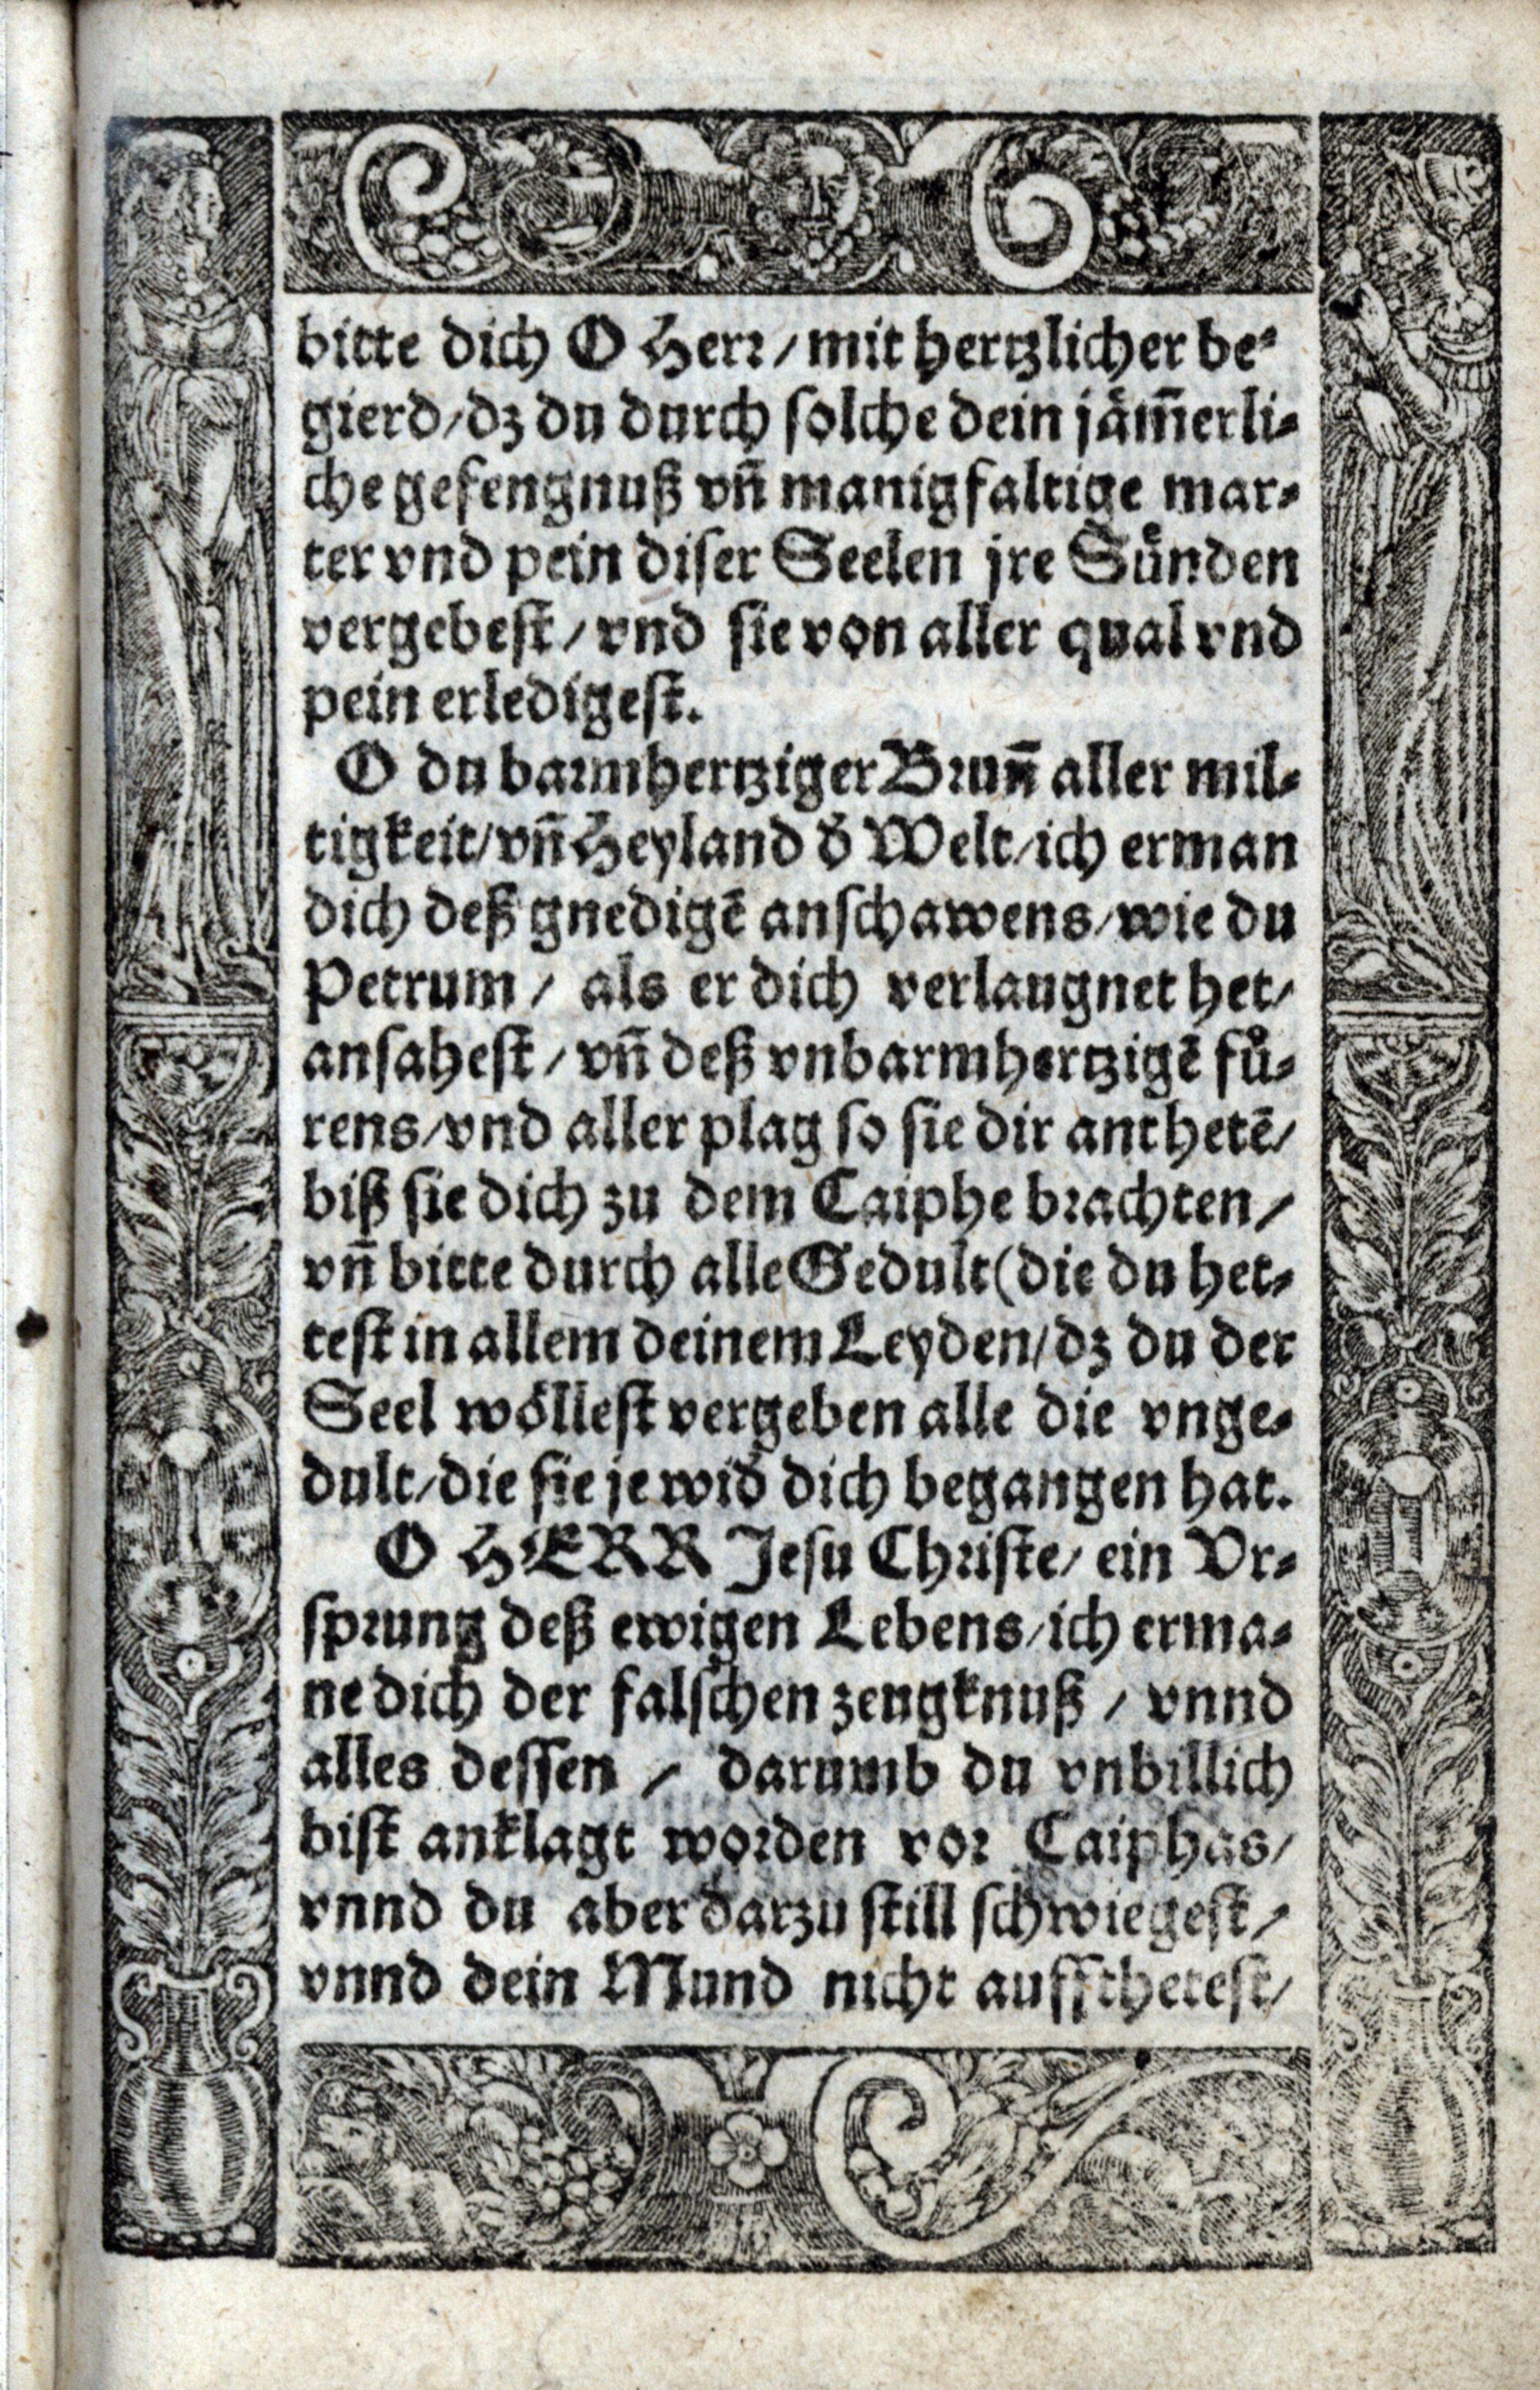 bitte dich O Herr / mit hertzlicher be⸗
gierd / dz du durch solche dein jäm̄erli⸗
che gefengnuß vn̄ manigfaltige mar⸗
ter vnd pein diser Seelen jre Sůnden
vergebest / vnd sie von aller qual vnd
pein erledigest.
O du barmhertziger Brun̄ aller mil⸗
tigkeit / vn̄ Heyland d' Welt / ich erman
dich deß gnedigē anschawens / wie du
Petrum / als er dich verlaugnet het /
ansahest / vn̄ deß vnbarmhertzigē fů⸗
rens / vnd aller plag so sie dir anthetē /
biß sie dich zu dem Caiphe brachten /
vn̄ bitte durch alle Gedult (die du het⸗
test in allem deinem Leyden / dz du der
Seel wöllest vergeben alle die vnge⸗
dult / die sie je wid' dich begangen hat.
O HERR Jesu Christe / ein Vr⸗
sprung deß ewigen Lebens / ich erma⸗
ne dich der falschen zeugknuß / vnnd
alles dessen / darumb du vnbillich
bist anklagt worden vor Caiphas /
vnnd du aber darzu still schwiegest /
vnnd dein Mund nicht auffthetest /